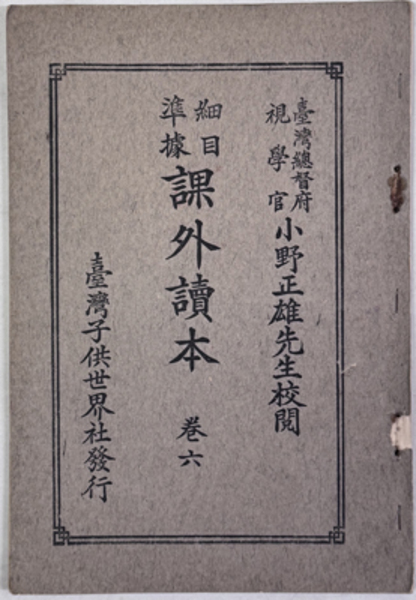 臺灣總督府
視學官 小野正雄先生校閱
細目
準據 課外讀本 卷六
臺灣子供世界社發行